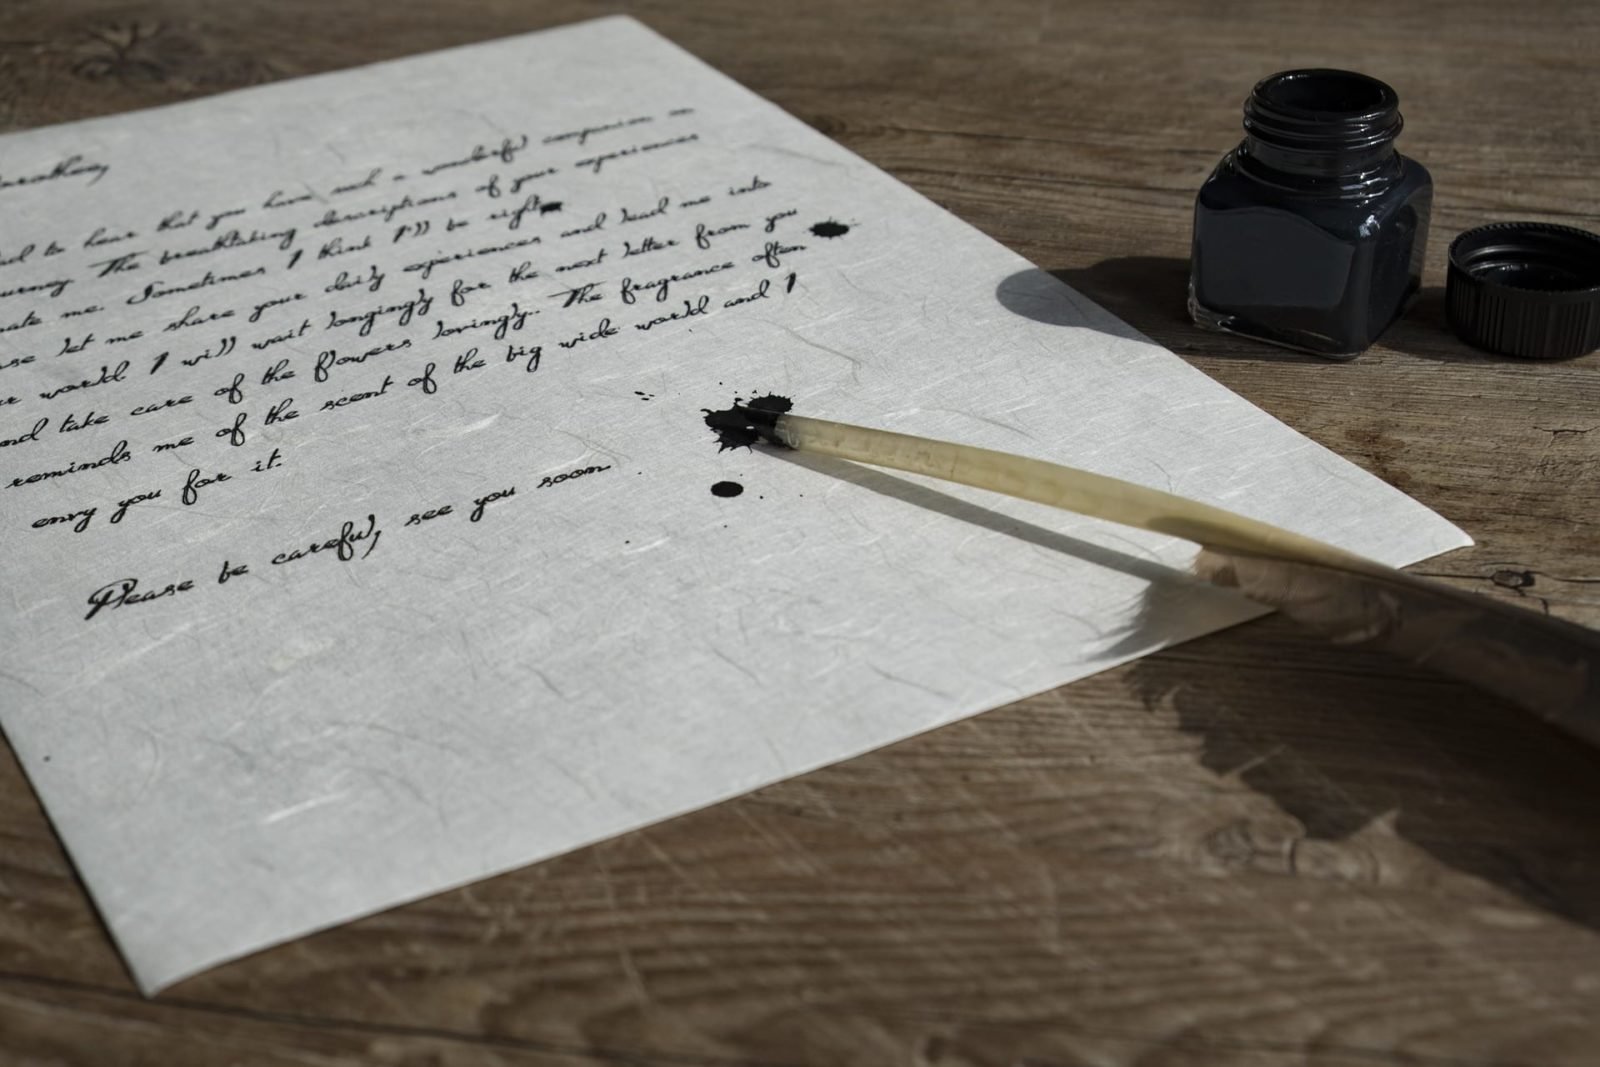 to hear that you have such a wonderful companion on
The breathtaking descriptions of your experiences
me. Sometimes I think I'll be right
let me share your daily experiences and lead me into
world. I will wait longingly for the next letter from you
and take care of the flowers lovingly.. The fragrance often
reminds me of the scent of the big wide world and I
envy you for it.
Please be careful, see you soon.